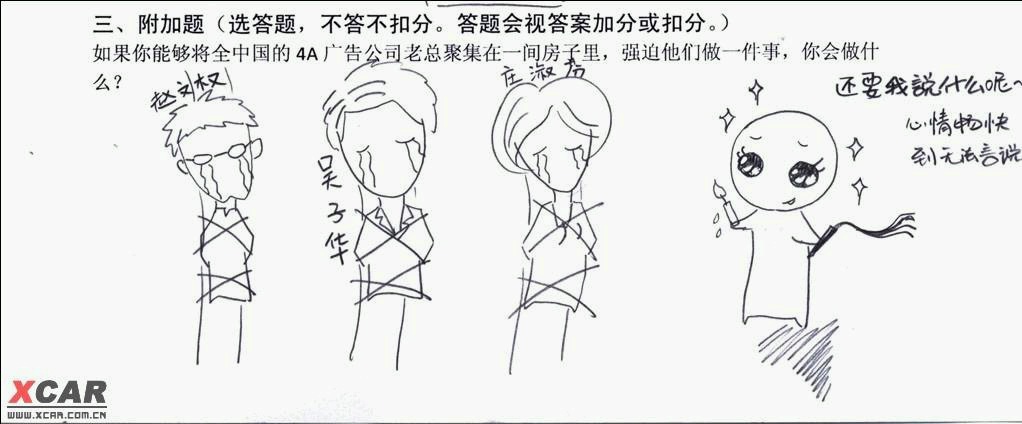 三、附加题（选答题，不答不扣分。答题会视答案加分或扣分。）
如果你能够将全中国的 4A 广告公司老总聚集在一间房子里，强迫他们做一件事，你会做什
么？
赵文权
吴子华
庄淑芬
还要我説什么呢~
心情畅快
到无法言说
XCAR
WWW.XCAR.COM.CN